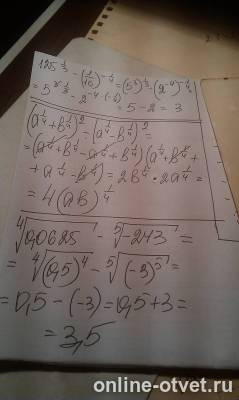 125^{1/3} - (1/16)^{-1/4} = (5^3)^{1/3} - (2^{-4})^{-1/4} =
= 5^{3·1/3} - 2^{-4·(-1/4)} = 5 - 2 = 3
(a^{1/4} + b^{1/4})^2 - (a^{1/4} - b^{1/4})^2 =
= (a^{1/4} + b^{1/4} - a^{1/4} + b^{1/4})(a^{1/4} + b^{1/4} +
+ a^{1/4} - b^{1/4}) = 2b^{1/4} · 2a^{1/4} =
= 4(ab)^{1/4}
⁴√0,0625 - ⁵√-243 =
= ⁴√(0,5)^4 - ⁵√(-3)^5 =
= 0,5 - (-3) = 0,5 + 3 =
= 3,5
online-otvet.ru